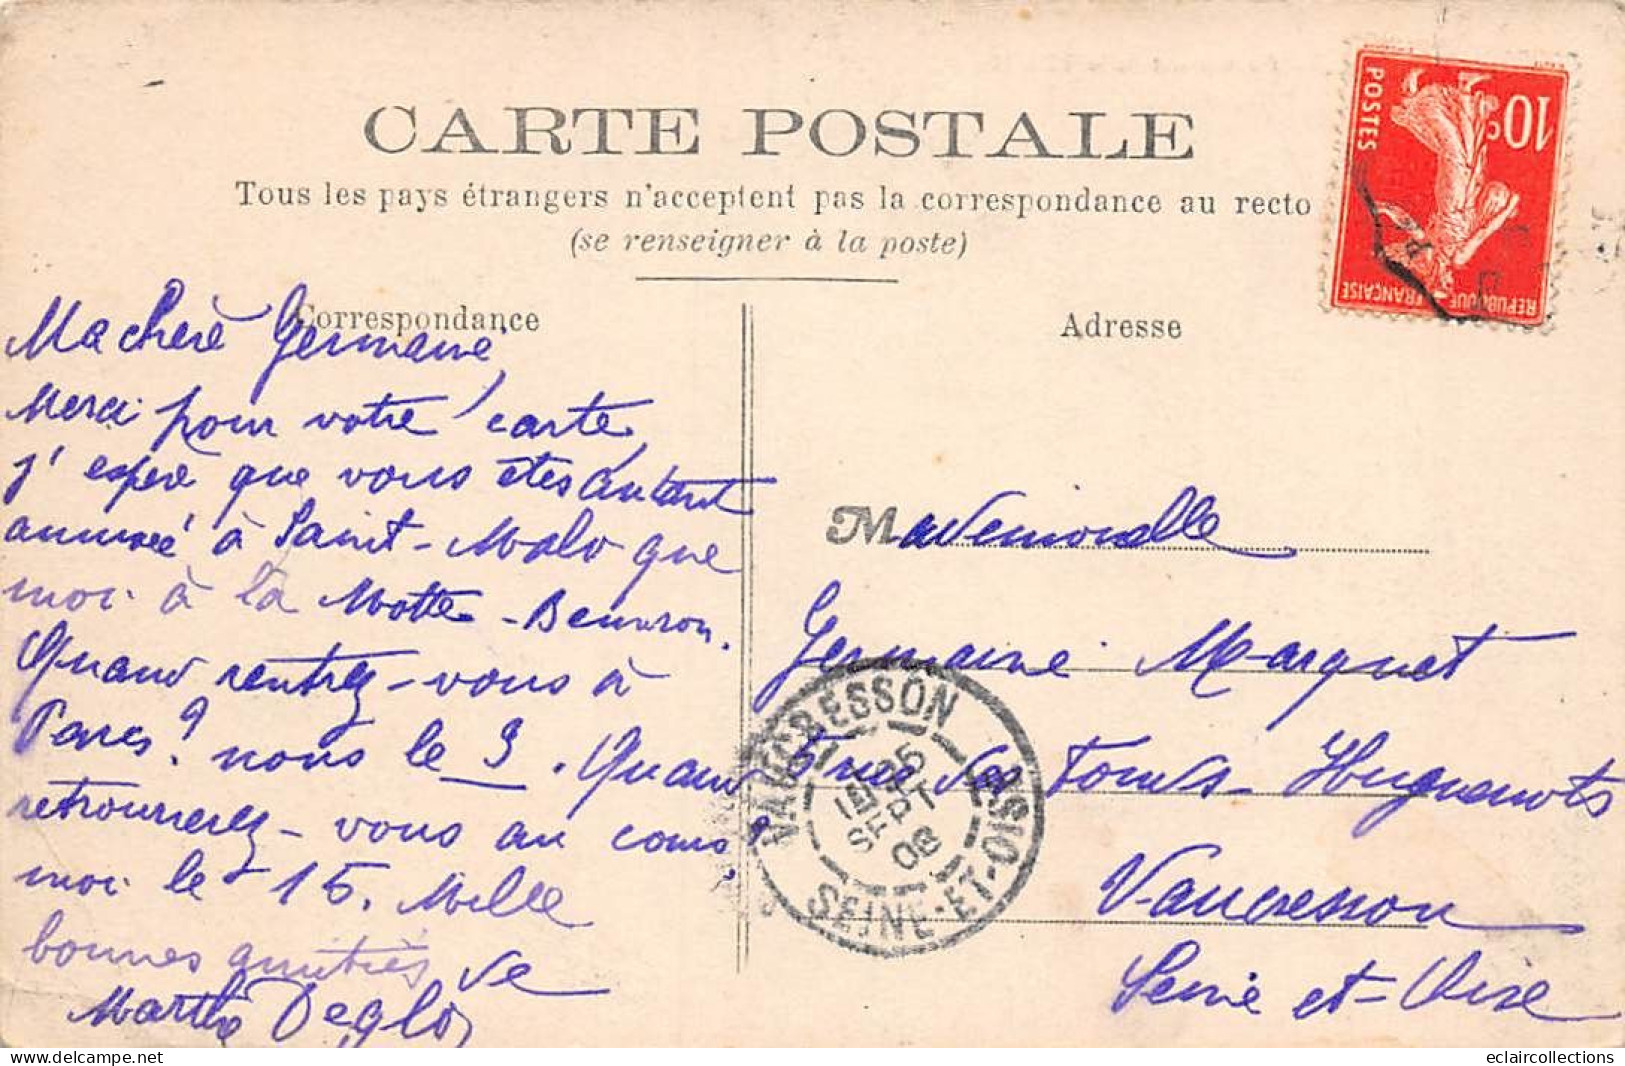 CARTE POSTALE
Tous les pays étrangers n'acceptent pas la correspondance au recto
(se renseigner à la poste)
Correspondance
Adresse
POSTES
10c
REPUBLIQUE FRANÇAISE
Ma chère Germaine,
Merci pour votre carte,
j'espère que vous êtes autant
amusée à Saint-Malo que
moi à la Motte-Beuvron.
Quand rentrez-vous à
Paris? nous le 3. Quand
retournerez-vous au cours?
moi le 15. Mille
bonnes amitiés
de
Marthe Deglos
Mademoiselle
Germaine Marquet
5 rue des Fonds Huguenots
Vaucresson
Seine et-Oise
VAUCRESSON
25
SEPT
08
SEINE-ET-OISE
eclaircollections